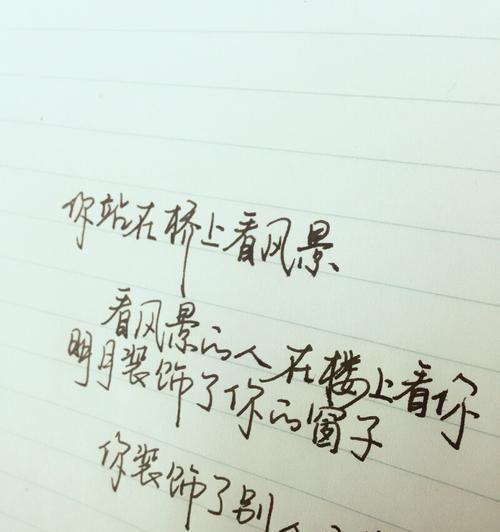 你站在桥上看风景
看风景的人在楼上看你
明月装饰了你的窗子
你装饰了别